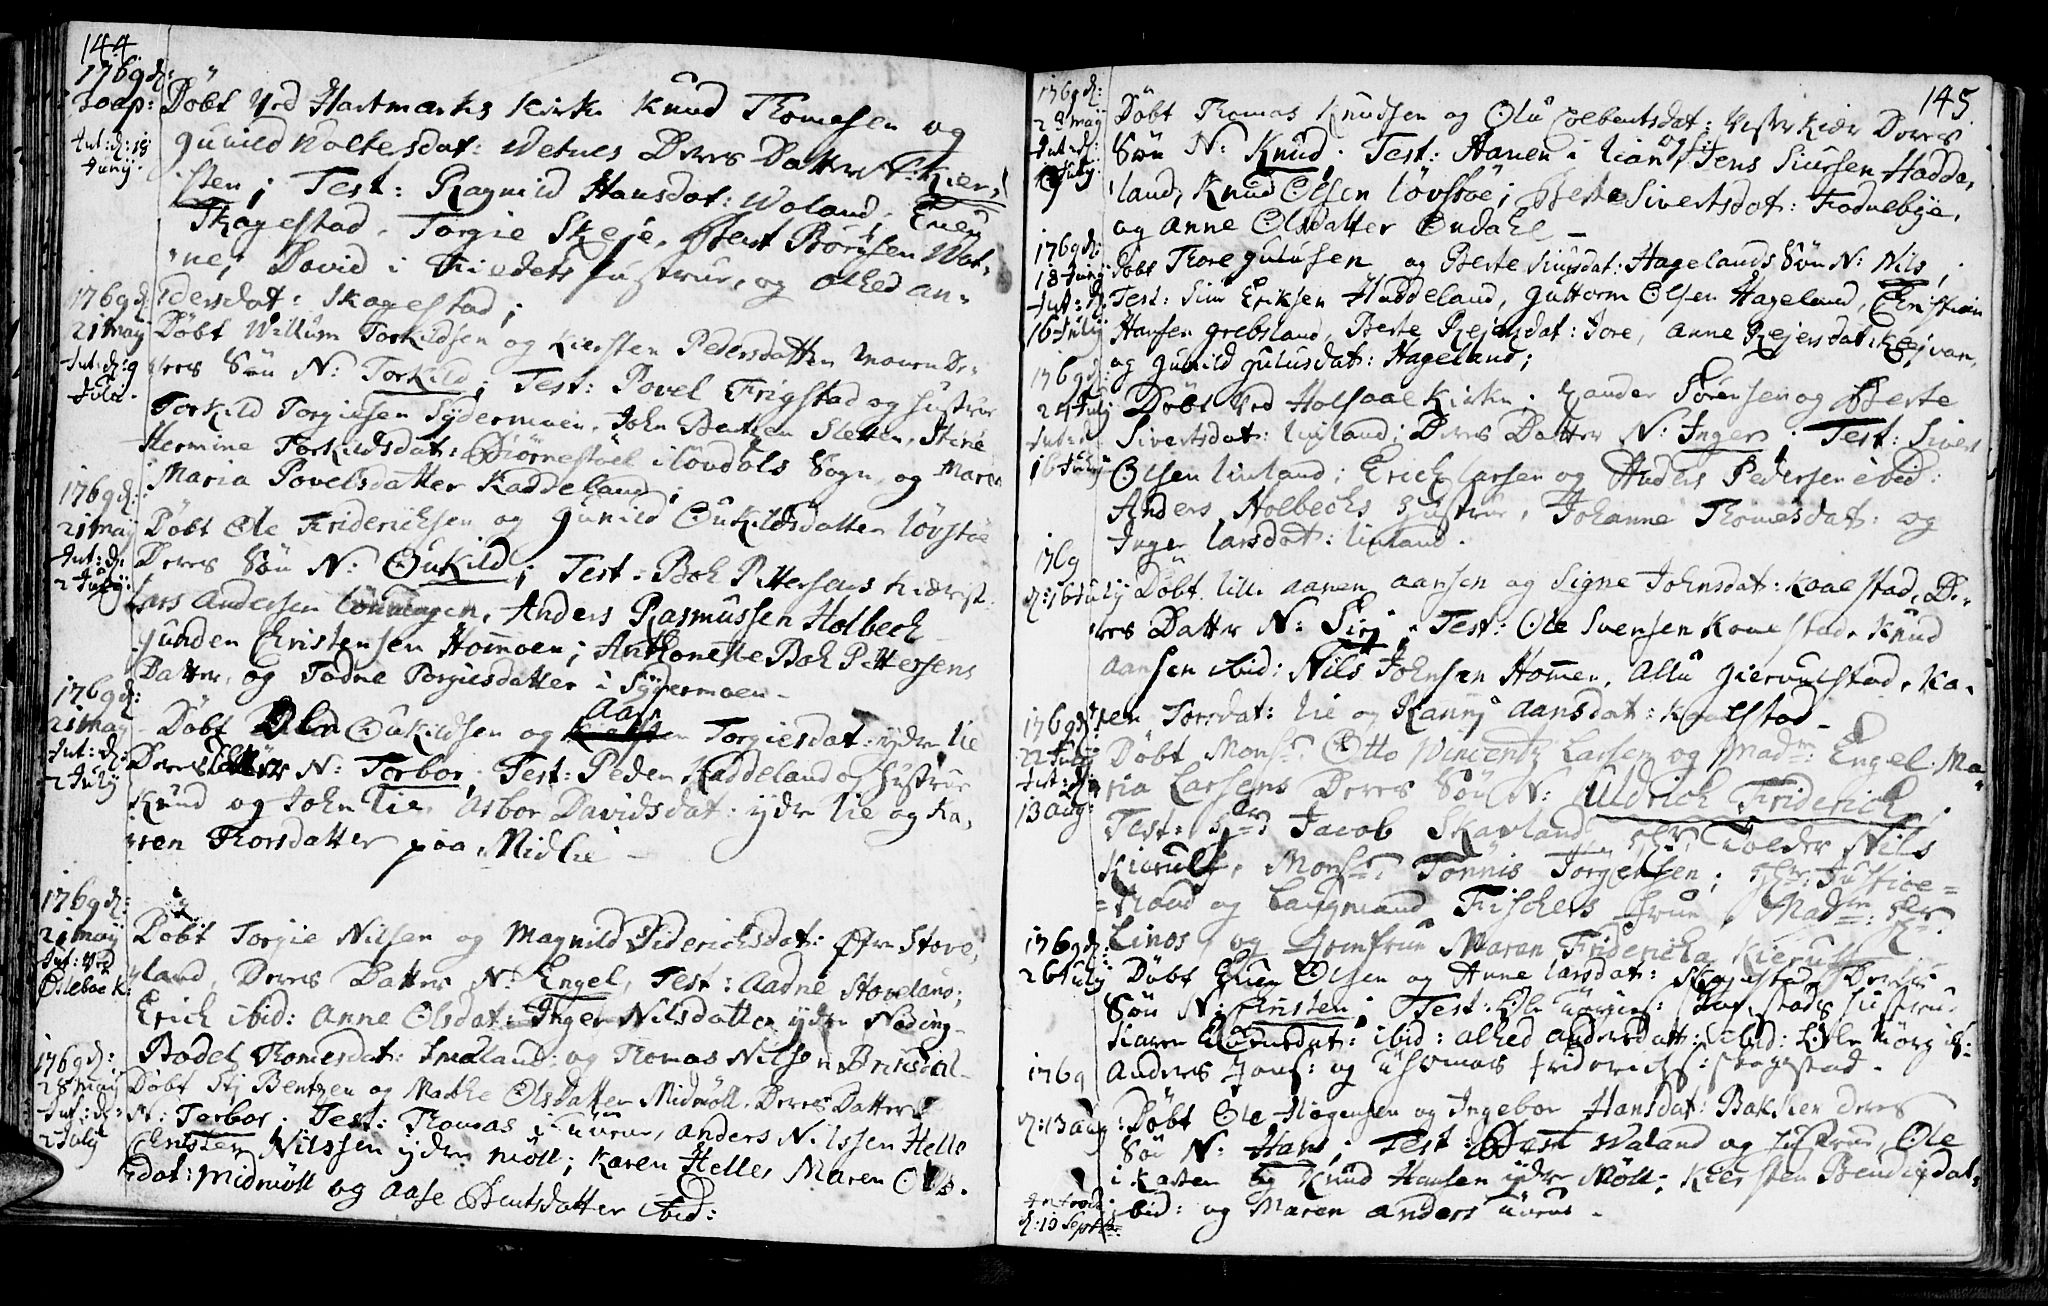 144
1769 d:
30 ap:
Int: d: 18
Junij.
Döbt Ved Hartmarks Kirke Knud Thomesen og
Gunild Nolkesdat: Wetnes Deres Datter N: Kier¬
sten; Test: Ragnild Hansdat: Woland. Even
Skagestad. Torgie Skeje. Bent Börisen Wat¬
ne; David i hustrue, og Alhed An¬
dersdat: Skagestad;
1769 d:
21 Maij
Int: d: 9
Julii.
Döbt Willum Torkildsen og Kiersten Pedersdatter Moven De¬
res Sön N: Torkild; Test: Povel Frigstad og hustrue
Torkild Torgiesen Sÿdermoen. John Bentzen Sletten, Stine
Hermine Torkildsdat: Biörnestöel i Lovdals Sogn, og Maren
Maria Povelsdatter Kaddeland;
1769 d:
21 Maij
Int: d:
2 Julij.
Döbt Ole Friderichsen og Gunild Oukildsdatter Lövstöe
Deres Sön N: Oukild; Test. Boh Pettersens Kiærest
Lars Andersen Lönningen, Anders Rasmussen Holbech
Gunden Christensen Homoen; Anthonette Boh Pettersens
Datter, og Todne Torgiesdatter i Sÿdermoen.
1769 d:
21 Maij
Int: d:
2 Julij
Döbt Ole Oukildsen og Aase Torgiesdat: ÿdre Lie
Deres Datter N: Torbor; Test: Peder Kaddeland og hustrue
Knud og John Lie. Asbor Davidsdat: ÿdre Lie og Ka¬
ren Thorsdatter paa Midlie
1769 d:
21 Maij
Int: Ved
Öilebæk:
Döbt Torgie Nilsen og Magnild Diderichsdat: Öfre Stove¬
land, Deres Datter N: Engel, Test: Aadne Stoveland;
Erich ibid: Anne Olsdat: Inger Nilsdatter ÿdre Nöding
Bodel Thomesdat: Smaland: og Thomas Nilsen Briksdal
1769 d:
28 Maij
Int: d:
2 Julij
Döbt Sÿ Bentzen og Mathe Olsdatter Midmöll. Deres Datter
N: Torbor. Test: Thomas i Tuvene, Anders Nilssen Helle
Christen Nilssen ÿdre Möll; Karen Helles Maren Ols¬
dat: Midmöll og Aase Bentsdatter ibid:
145
1769 d:
28 Maij
Int: d:
9 Julij.
Döbt Thomas Knudsen og Olu Colbentsdat: Vesterkiær Deres
Sön N: Knud. Test: Hanen i Lian, Jens Siursen Hadde¬
land, Knud Olsen Lövstöe; Berte Sivertsdat: Fodnebÿe,
og Anne Olsdatter Ondahl
1769 d:
18 Junij
Int: d:
16 Julij
Döbt Thore Gulusen og Berte Siursdat: Hagelands Sön N: Nils;
Test: Siur Eriksen Haddeland, Guttorm Olsen Hageland, Christian
Hansen Grebsland, Berte Rejersdat: Jore, Anne Rejersdat: Kejvan,
og Gunild Gulusdat: Hageland;
1769 d:
24 Julij
Int: d:
16 Julij
Döbt Ved Holsaae Kirke. Xander Sörensen og Berte
Sivertsdat: Linland; Deres Datter N: Inger; Test: Siver
Olsen Linland; Erich Larsen og Anders Pedersen ibid:
Anders Holbechs Hustrue, Johanne Thomesdat: og
Inger Larsdat: Linland.
1769
d: 16 Julij
Döbt Lill. Aanen Aansen og Signe Johnsdat: Kaalstad, De¬
res Datter N: Siri; Test: Ole Svensen Koulstad. Knud
Aansen ibid: Nils Johnsen Homen, Allu Giervulstad, Ka¬
ren Torsdat: Lie og Ranij Aansdat: Kaalstad
1769 d:
22 Julij
Int: d:
13 Aug:
Döbt Monsr: Otto Wincentz Larsen og Madme: Engel Ma¬
ria Larsens Deres Sön N: Uldrich Friderich;
Test: Hr: Jacob Skavland, Hr: Tolder Nils
Kierulf, Monsr: Tönnis Jörgensen; Hr: Justice=
=Raad og Laugmand Fischers Frue, Madme: Hr:
Linos, og Jomfrue Maren Fridericka Kierulf
1769 d:
26 Julij
Döbt Even Olsen og Anne Larsdat: Skagestad Deres
Sön N: Christen; Test: Ole Hustrue.
Karen ibid: Alhed Andersdatt: ibid:
Anders Jens: og Thomas Friderichs: Skagestad.
1769
d: 13 Aug:
Döbt Ole Högensen og Ingebor Hansdat: Bakken Deres
Sön N: Hans; Test: Bent Waland og Hustrue, Ole
i Kasten og Knud Hansen ÿdre Möll; Kiersten Bendixdat:
ibid: og Maren Anders Tuvene.
Introd:
d: 10 Septbr: